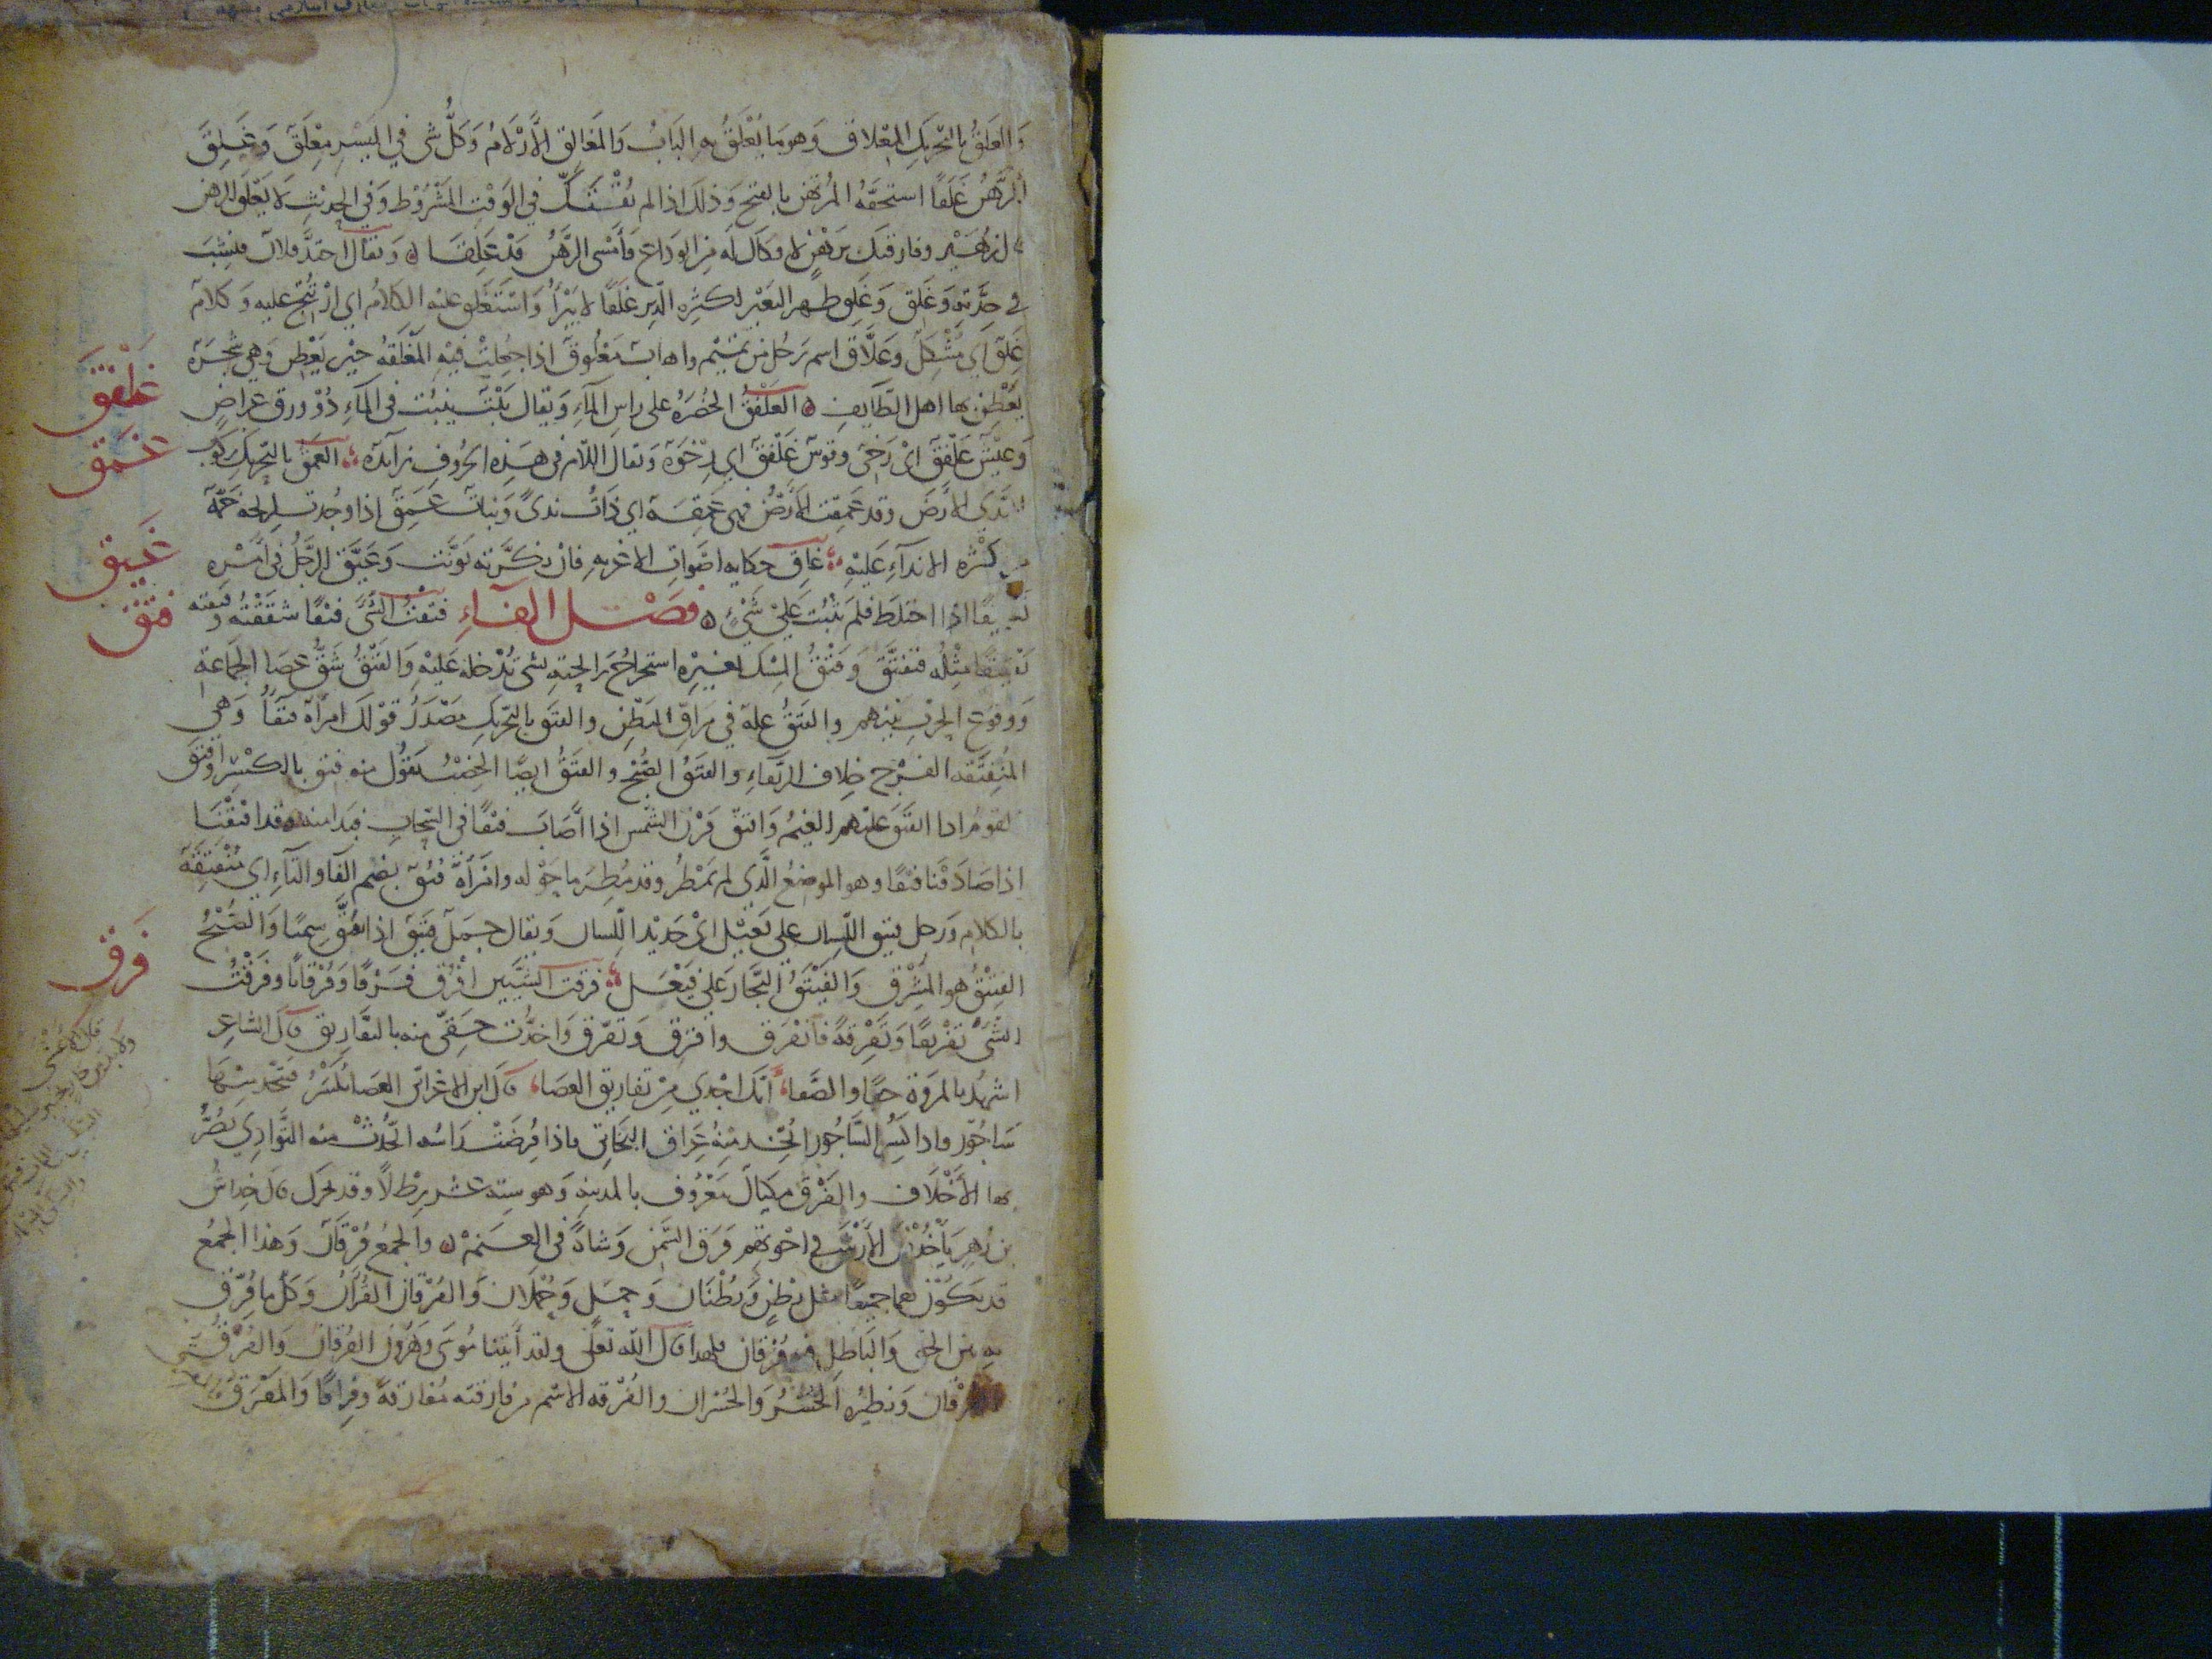 وَالغَلَقُ بالتحْرِيكِ المِغْلاق وَهو مَا يُغْلَقُ بهِ البَابُ وَالمَغَالِق الأَزْلامُ وَكلُّ شى فى المَيْسِرِ مِغْلَق وَغَلِقَ
الرَّهْنُ غَلَقًا استحقَّهُ المُرْتَهِن بالفتح وَذلكَ اذا لم يُفْتَكَّ فى الوَقْتِ المَشْرُوطِ وَفى الحَدِيْثِ لا يَغْلَق الرهْن
ل زُهَيْر وفارقتكَ بِرَهْنٍ لا فكاكَ لَه يَوم الوَدَاع فَأَمْسى الرَّهْنُ قَدْ غَلِقَا ۵ وَيقَال احتَدَّ فلانٌ فنَشِبَ
فى حِدَّتِه وَغَلِقَ وَغَلِق ظهر البَعِيْر لكثرهِ الدّبر غلَقًا لا يَبْرَأُ وَاسْتَغْلَق عليه الكلامُ اى ارْتُتِجَ عليه وَكلامٌ
غَلِقٌ اى مُشْكِلٌ وَغلَّاق اسم رَجُل من تميْم واهابٌ مَغْلُوق اذا جُعِلَتْ فيْهِ الغَلْقَهُ حيْن يُعْطَن وَهى شَجَرَة
يَعْطِنُ بها اهل الطَّايف ۵ الغَلْفَقُ الخُضْرَهُ على رَاسِ المَآءِ وَيقال نَبْتٌ يَنبُت فى المَآءِ ذُوْ ورق عِرَاضٍ
وَعيْشٌ غَلْفَق اىْ رَخىّ وقوسٌ غَلْفَق اى رِخْوَة وَيقال اللّام فى هَذِه الحُرُوفِ زآئدَه الغَمَق بالتحْرِيك رُكُوْب
النَّدَى الأَرضَ وقد غَمِقَت الأَرْضُ فهى غَمِقَة اى ذَاتُ ندىً وَنبات غَمِق اذا وجَدتَ لِرِيْحِه خَمَّة
من كَثْرَه الاندَآءِ عَلَيْهِ غَاقِ حكايه اصْوَاتِ الاغربهِ فان نكَّرَته نوَّنت وَغَيَّق الرَّجُلُ فى امْرِه
تغييقًا اذا اختلَطَ فلم يَثْبُت عَلىٰ شَىْءٍ ۵ فَصْــل الفَــآءِ فتَقْتُ الشَّىَ فتْقًا شقَقْتُه وفتقته
تَفْتِيقًا مِثْلُه فتفَتَّقَ وَفَتْقُ المِسْك بغيرِه استخراجُ رَايحتهِ بشى تُدْخله عَليْهِ وَالفَتْقُ شَقُّ عصَا الجمَاعَةِ
وَوقوع الحَرْبِ بينهم والفَتْقُ علة فى مَرَاقّ البَطْن والفتَق بالتحْرِيكِ مصْدَرُ قوْلكَ امرأة فتقآءُ وَهى
المُنْفَتِقَه الفَرْج خِلاف الرَّتْقاءِ والفتَقُ الصُّبْحُ والفتَقُ ايضًا الخِصْبُ يَقُوْل منه فتِق بالكسْر وافتقَ
القوم اذا انفتَق عَنهم الغَيْمُ وَافتق قَرْنُ الشمس اذا اصَابَ فتْقًا فى السّحابِ فبَدا منه وقد افتقْنَا
اذا صَادَفْنَا فتْقًا وهو الموضعُ الَّذى لم يَمْطُر وقد مُطِرَ ما حَوْله وامرَأة فُتُق بضم الفآءِ والتآءِ اى مُنْفَتِقَة
بالكلام وَرجل فتيق اللّسان على فَعِيْل اىْ حَدِيْد اللّسان وَيقال جمَل فَتِيق اذا تفَتَّقَ سِمَنًا وَالصُّبْحُ
الفَتِيْقُ هو المُشْرِق وَالفَيْتَقُ النَّجَّار عَلى فَيْعَل فرَقت بين الشَّيْيَين أَفْرُقُ فَرْقًا وَفُرْقانًا وفَرَّقْتُ
الشَّىَ تفْرِيقًا وَتَفْرِقَةً فانْفرَق وافترَق وَتفَرَّق وَاخَذْت حَقّى منه بالتفَارِيق قالَ الشاعر
اشهدُ بالمروَةِ حقًا والصَّفا أنّكَ اجْدى مِنْ تفاريق العصَا قالَ ابن الاعرابى العصَا تُكسَرُ فتُتّخذ مِنها
سَاجُوْر واذا كُسِرَ السَّاجُور اتُّخِذ مِنْهُ عِرَان البخَاتى فاذا فُرِضَتْ رَاسُه اتُّخِذت منه التَّوَادِى تُصَرُّ
بها الأَخْلاف والفَرْق مِكيَالٌ مَعْرُوف بالمدينهِ وَهو ستّه عشر رِطْلاً وقد يُحَرَّك قالَ خِداشُ
بن زُهير يَأْخُذُوْن الأَرْشَ فى اخوتِهم فرَق السَّمن وَشاةً فى الغَنَمْ ۵ والجمْعُ فُرْقان وَهَذا الجَمْعُ
قد يَكُوْن لهما جَميعًا مثل بَطْنٍ وَبُطْنَان وَحَمَل وَحُمْلان وَالفُرْقان القُرْآن وَكلُّ ما فُرِّق
بهِ بَيْن الحَقِّ وَالبَاطِلِ فهو فُرْقان فلهذا قالَ اللّه تعَالى ولقد آتينا مُوسَى وَهرُونَ الفُرقانَ وَالفُرْقُ
الفُرْقان وَنظِيْره الخُسْرُ وَالخُسْران والفُرْقه الاسْم من فارقته مُفارَقةً وَفِراقًا وَالمَفْرَقُ
غَلْفَق
غَمَق
غيق
فتق
فَرَق